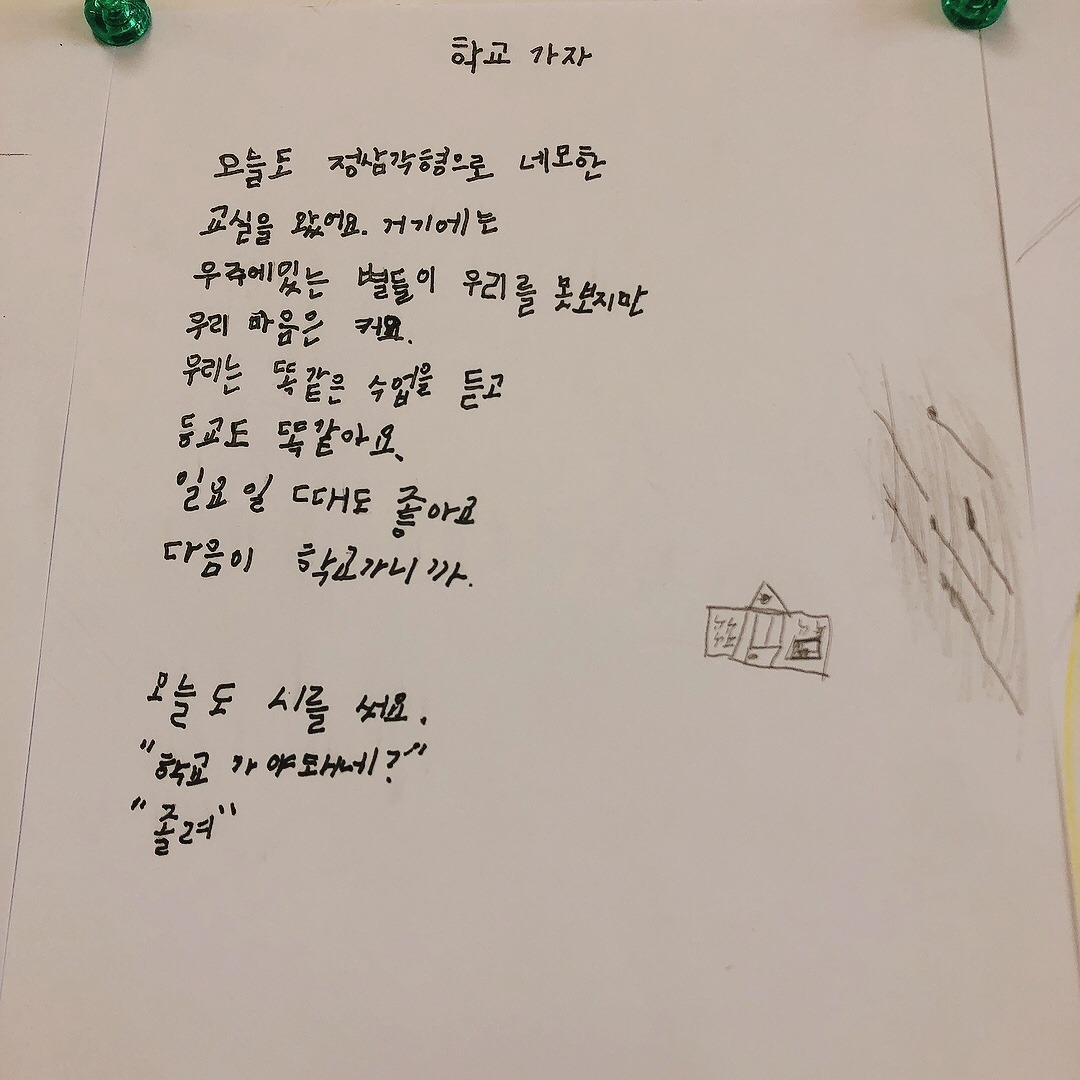 학교 가자
오늘도 정삼각형으로 네모한
교실을 왔어요. 거기에는
우주에있는 별들이 우리를 못보지만
우리 마음은 커요.
우리는 똑같은 수업을 듣고
등교도 똑같아요.
일요일 때도 좋아요
다음이 학교가니까.
오늘도 시를 써요.
"학교 가야돼네?"
"졸려"